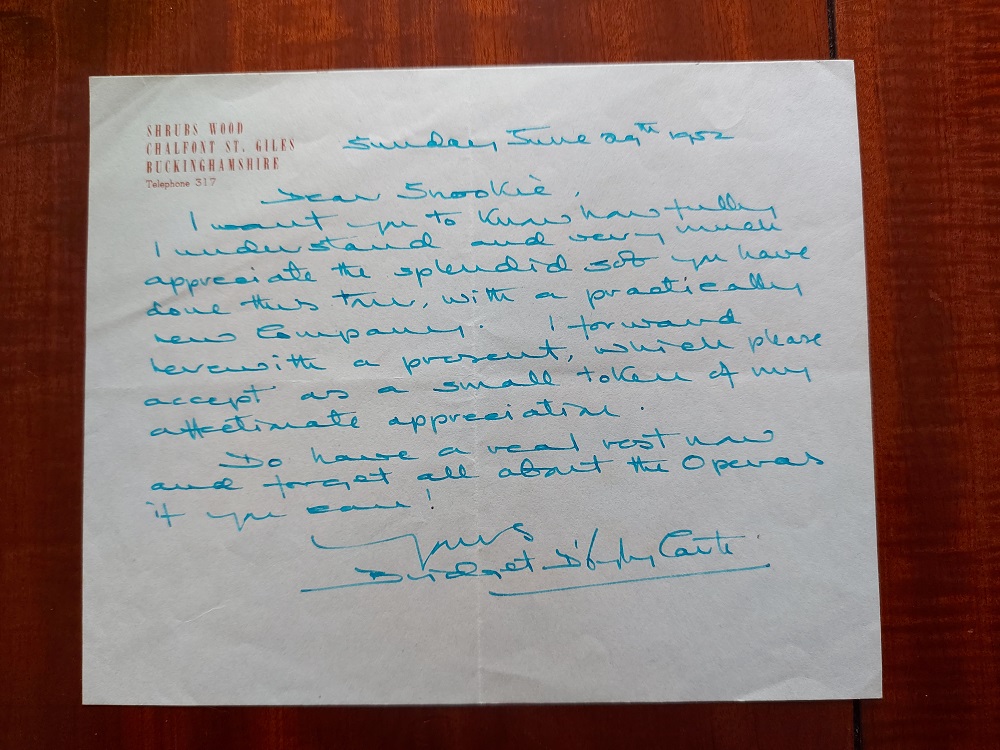 SHRUBS WOOD
CHALFONT ST. GILES
BUCKINGHAMSHIRE
Telephone 317
Sunday June 29th 1952
Dear Snookie,
I want you to know how fully
I understand and very much
appreciate the splendid job you have
done this time, with a practically
new Company. I forward
herewith a present, which please
accept as a small token of my
affectionate appreciation.
Do have a real rest now
and forget all about the Operas
if you can!
Yours
Bridget D'Oyly Carte.